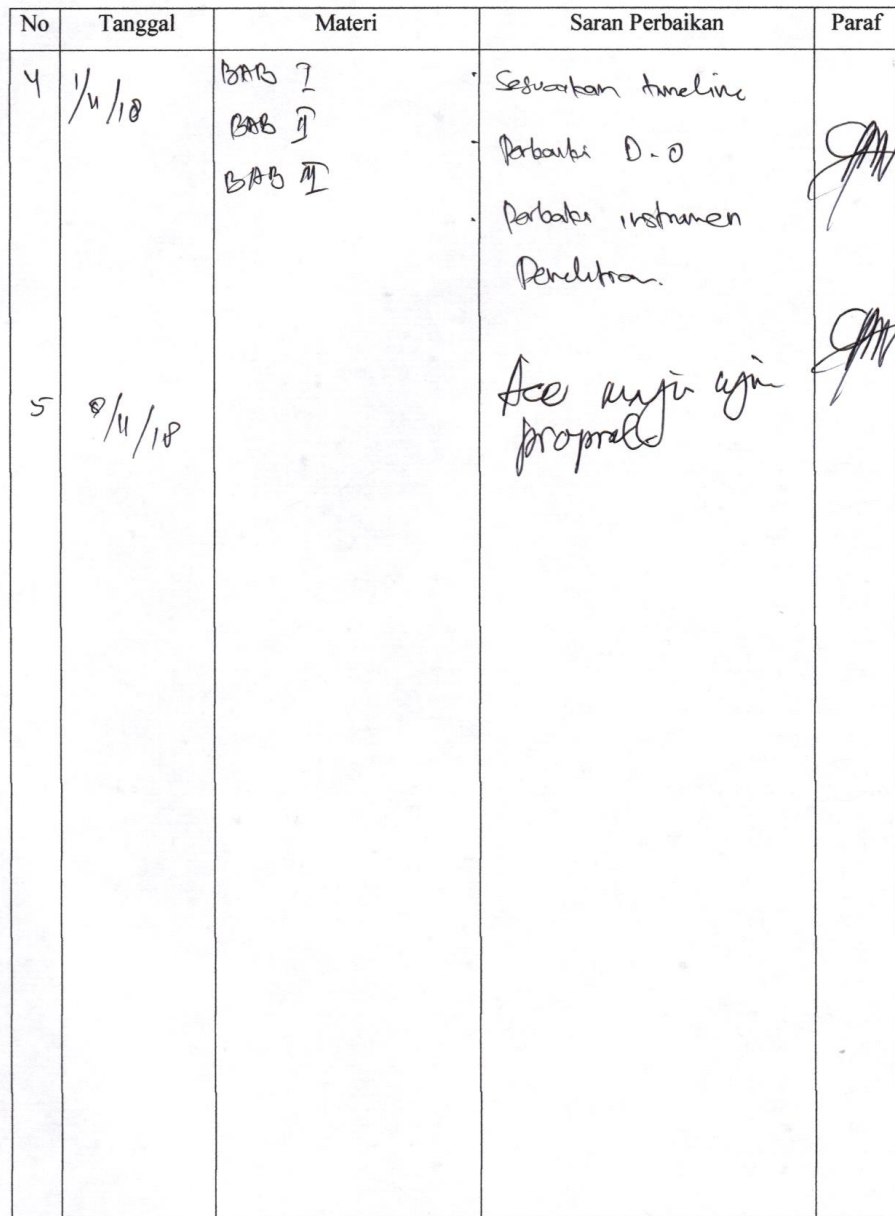 No Tanggal Materi Saran Perbaikan Paraf
4 1/11/18 BAB I Sesuaikan timeline
BAB II Perbaiki D.O
BAB III Perbaiki instrumen
Penelitian.
5 8/11/18 Acc maju ujian
proposal